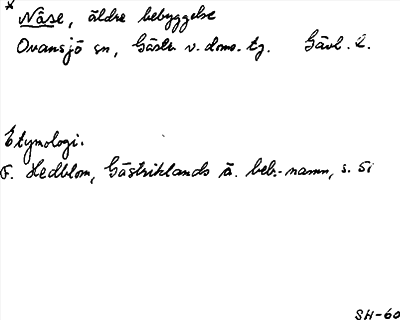 * Nåse, äldre bebyggelse
Ovansjö sn, Gästr. v. doms. tg. Gävl. l.
Etymologi.
F. Hedblom, Gästriklands ä. beb.-namn, s. 51
SH-60